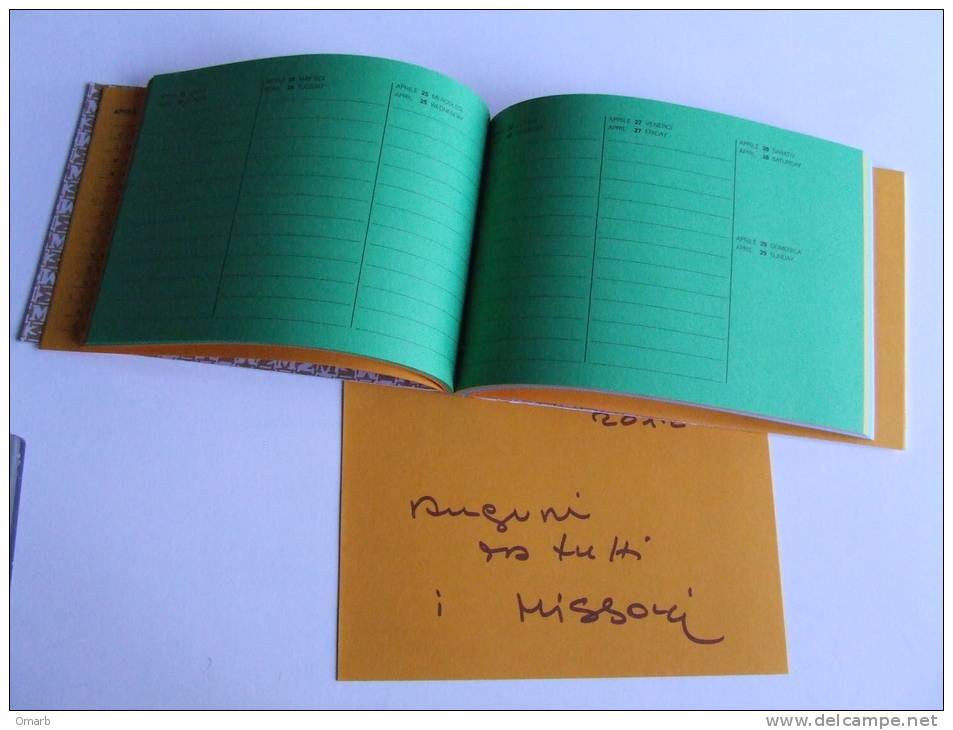 APRILE 24 MARTEDI
APRIL 24 TUESDAY
APRILE 25 MERCOLEDI
APRIL 25 WEDNESDAY
APRILE 27 VENERDI
APRIL 27 FRIDAY
APRILE 28 SABATO
APRIL 28 SATURDAY
APRILE 29 DOMENICA
APRIL 29 SUNDAY
2012
Auguri
da tutti
i Missoni
Omarb
www.delcampe.net